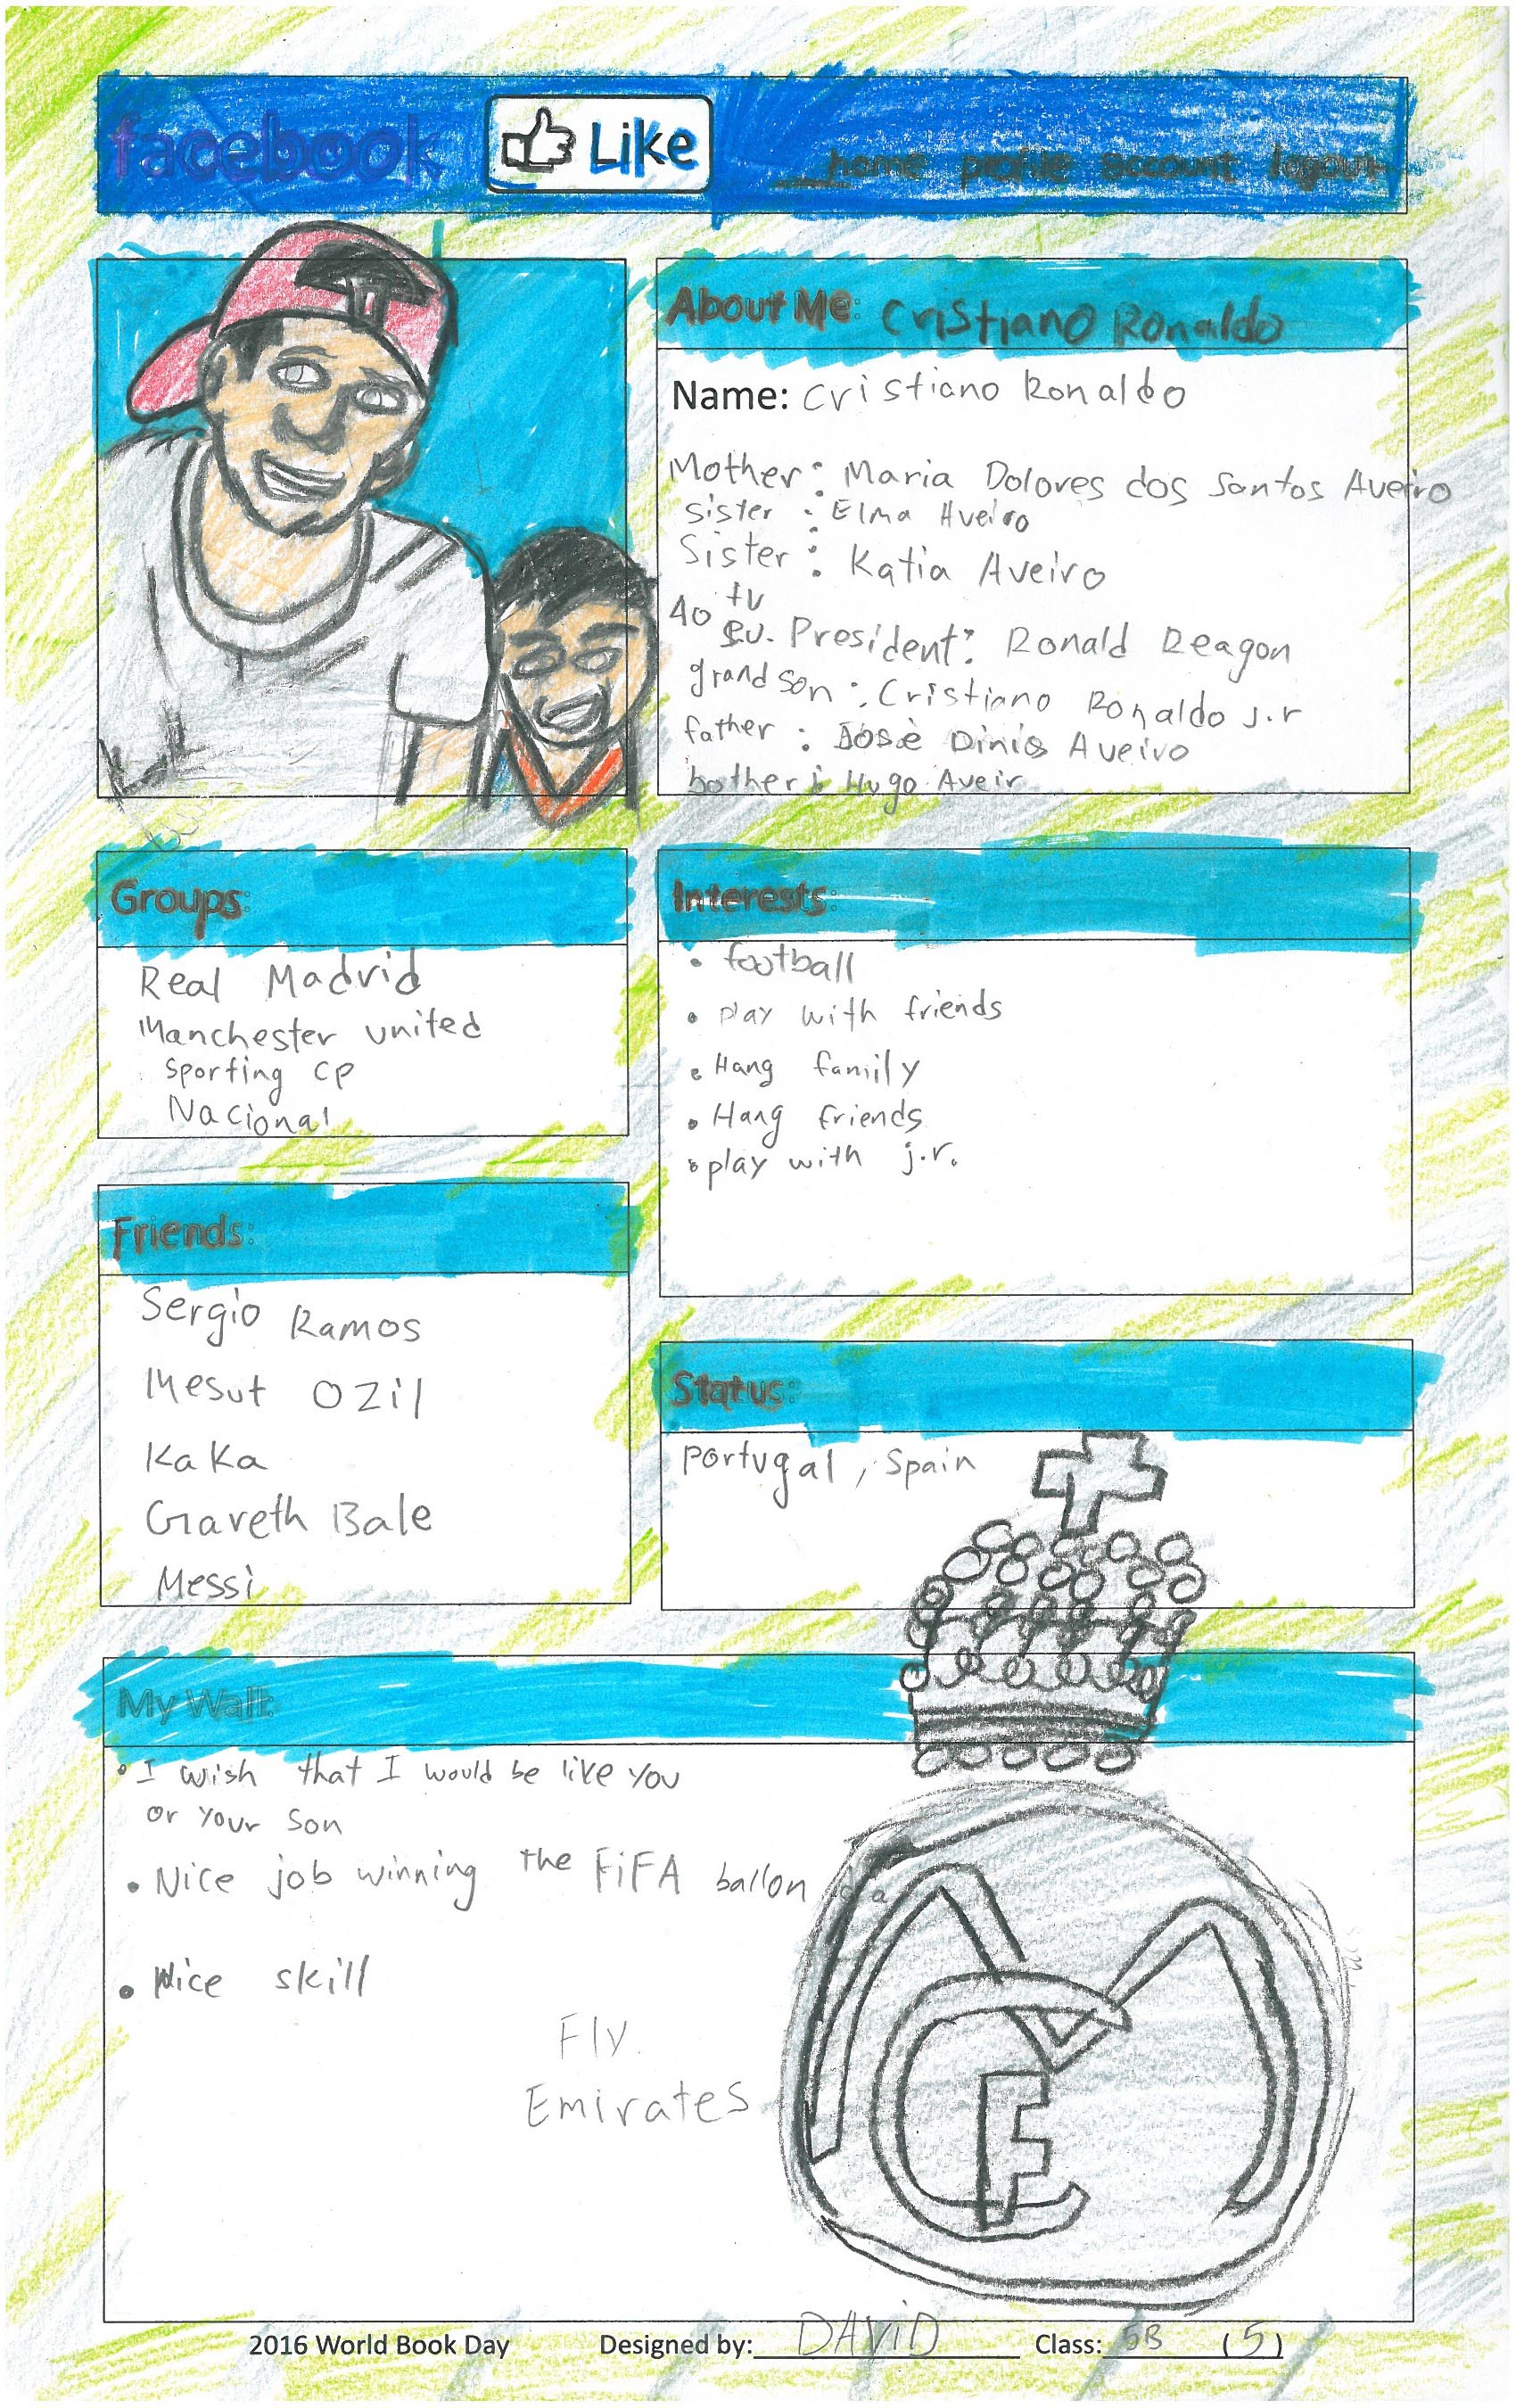 facebook
Like
home profile account logout
About Me: Cristiano Ronaldo
Name: Cristiano Ronaldo
Mother: Maria Dolores dos Santos Aveiro
sister : Elma Aveiro
Sister : Katia Aveiro
40 tu
President: Ronald Reagon
grand son : Cristiano Ronaldo J.r
father : Josè Dinis Aveiro
bother : Hugo Aveir
Groups:
Real Madrid
Manchester united
Sporting CP
Nacional
Interests:
• football
• play with friends
• Hang family
• Hang friends
• play with j.r.
Friends:
Sergio Ramos
Mesut OZil
KaKa
Gareth Bale
Messi
Status:
Portugal, Spain
My Wall:
• I wish that I would be like you
or your son
• Nice job winning the FiFA ballon
• Nice skill
Fly
Emirates
2016 World Book Day Designed by: DAViD Class: 5B (5)